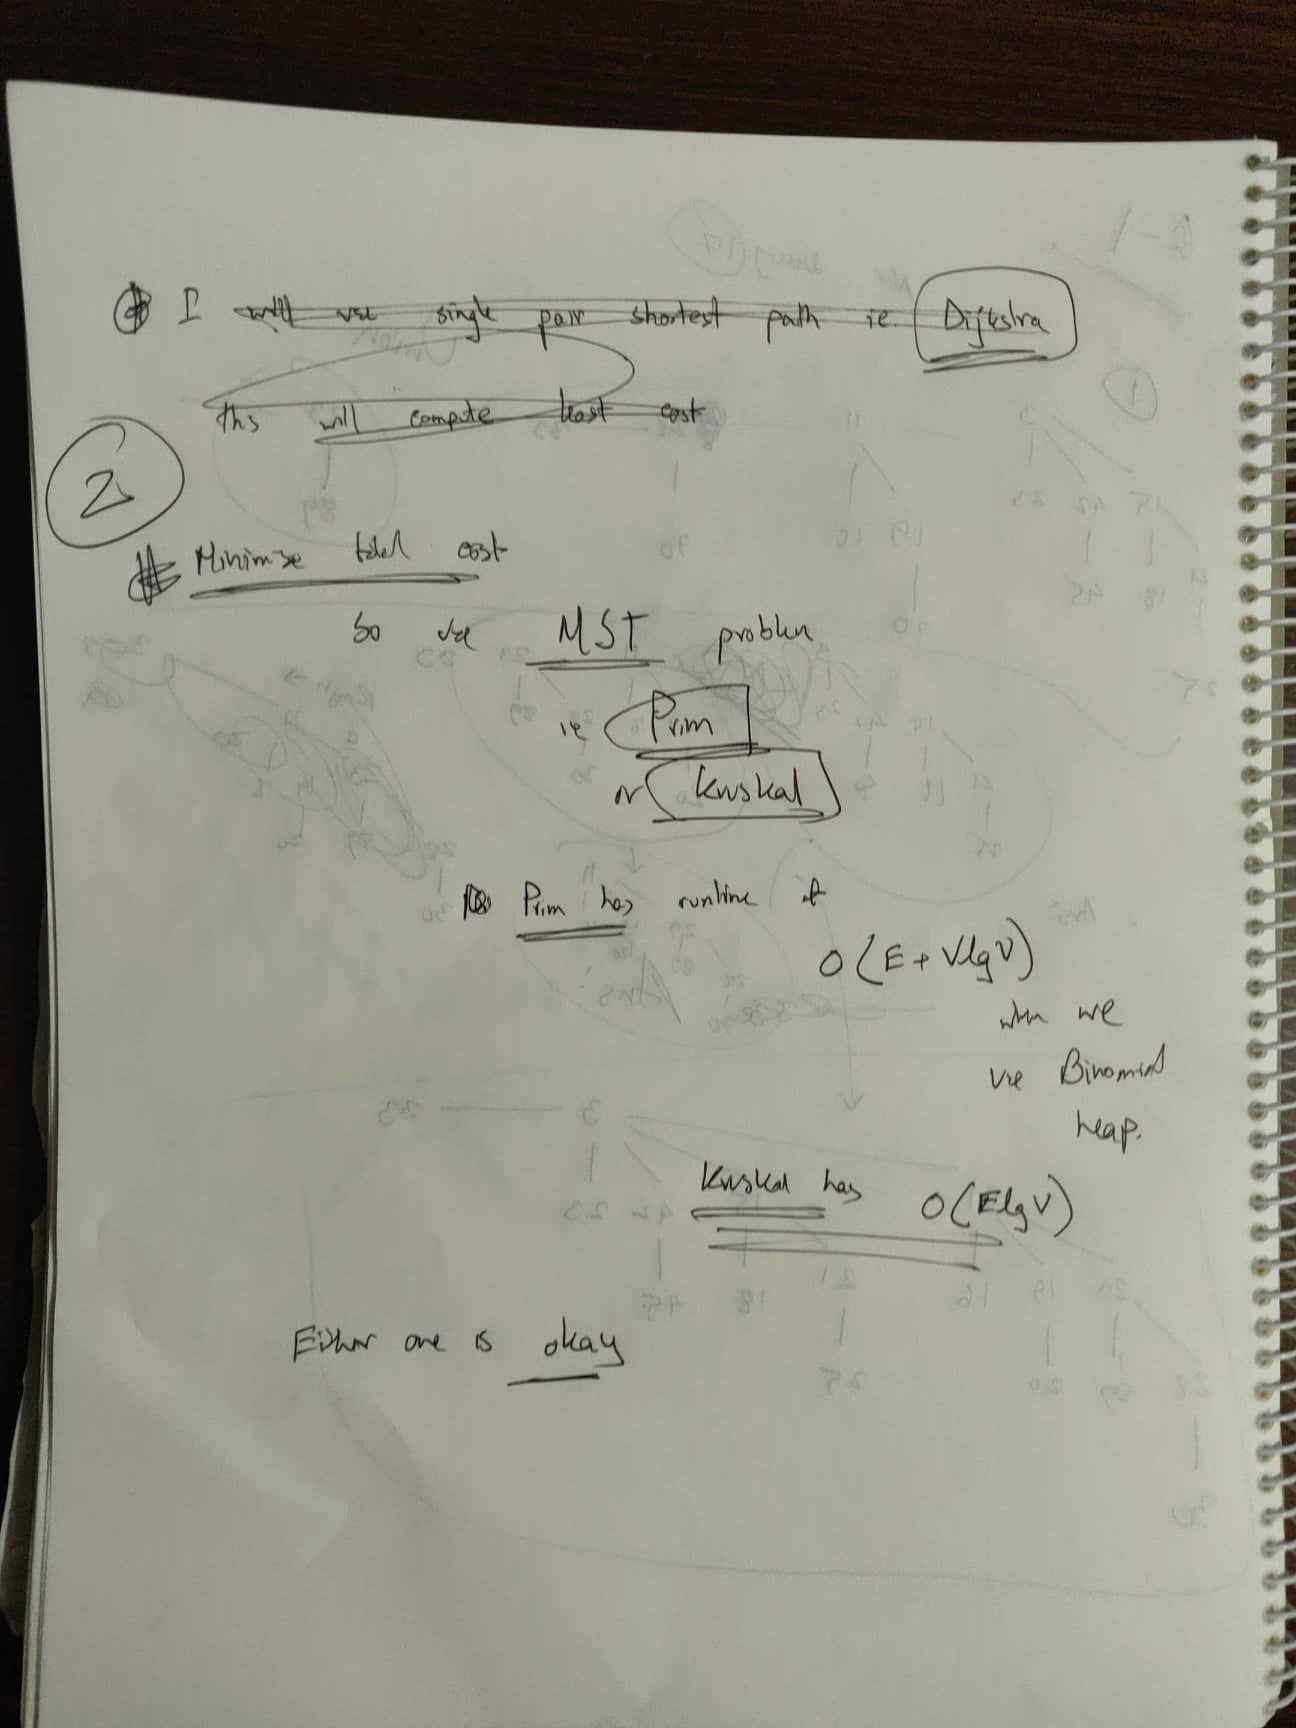 I will use single pair shortest path ie. Dijkstra
ths will compute least cost
2
Minimize total cost
So use MST problem
ie Prim
or Kruskal
Prim has runtime of
O(E+VlgV)
when we
use Binomial
heap.
Kruskal has O(ElgV)
Either one is okay